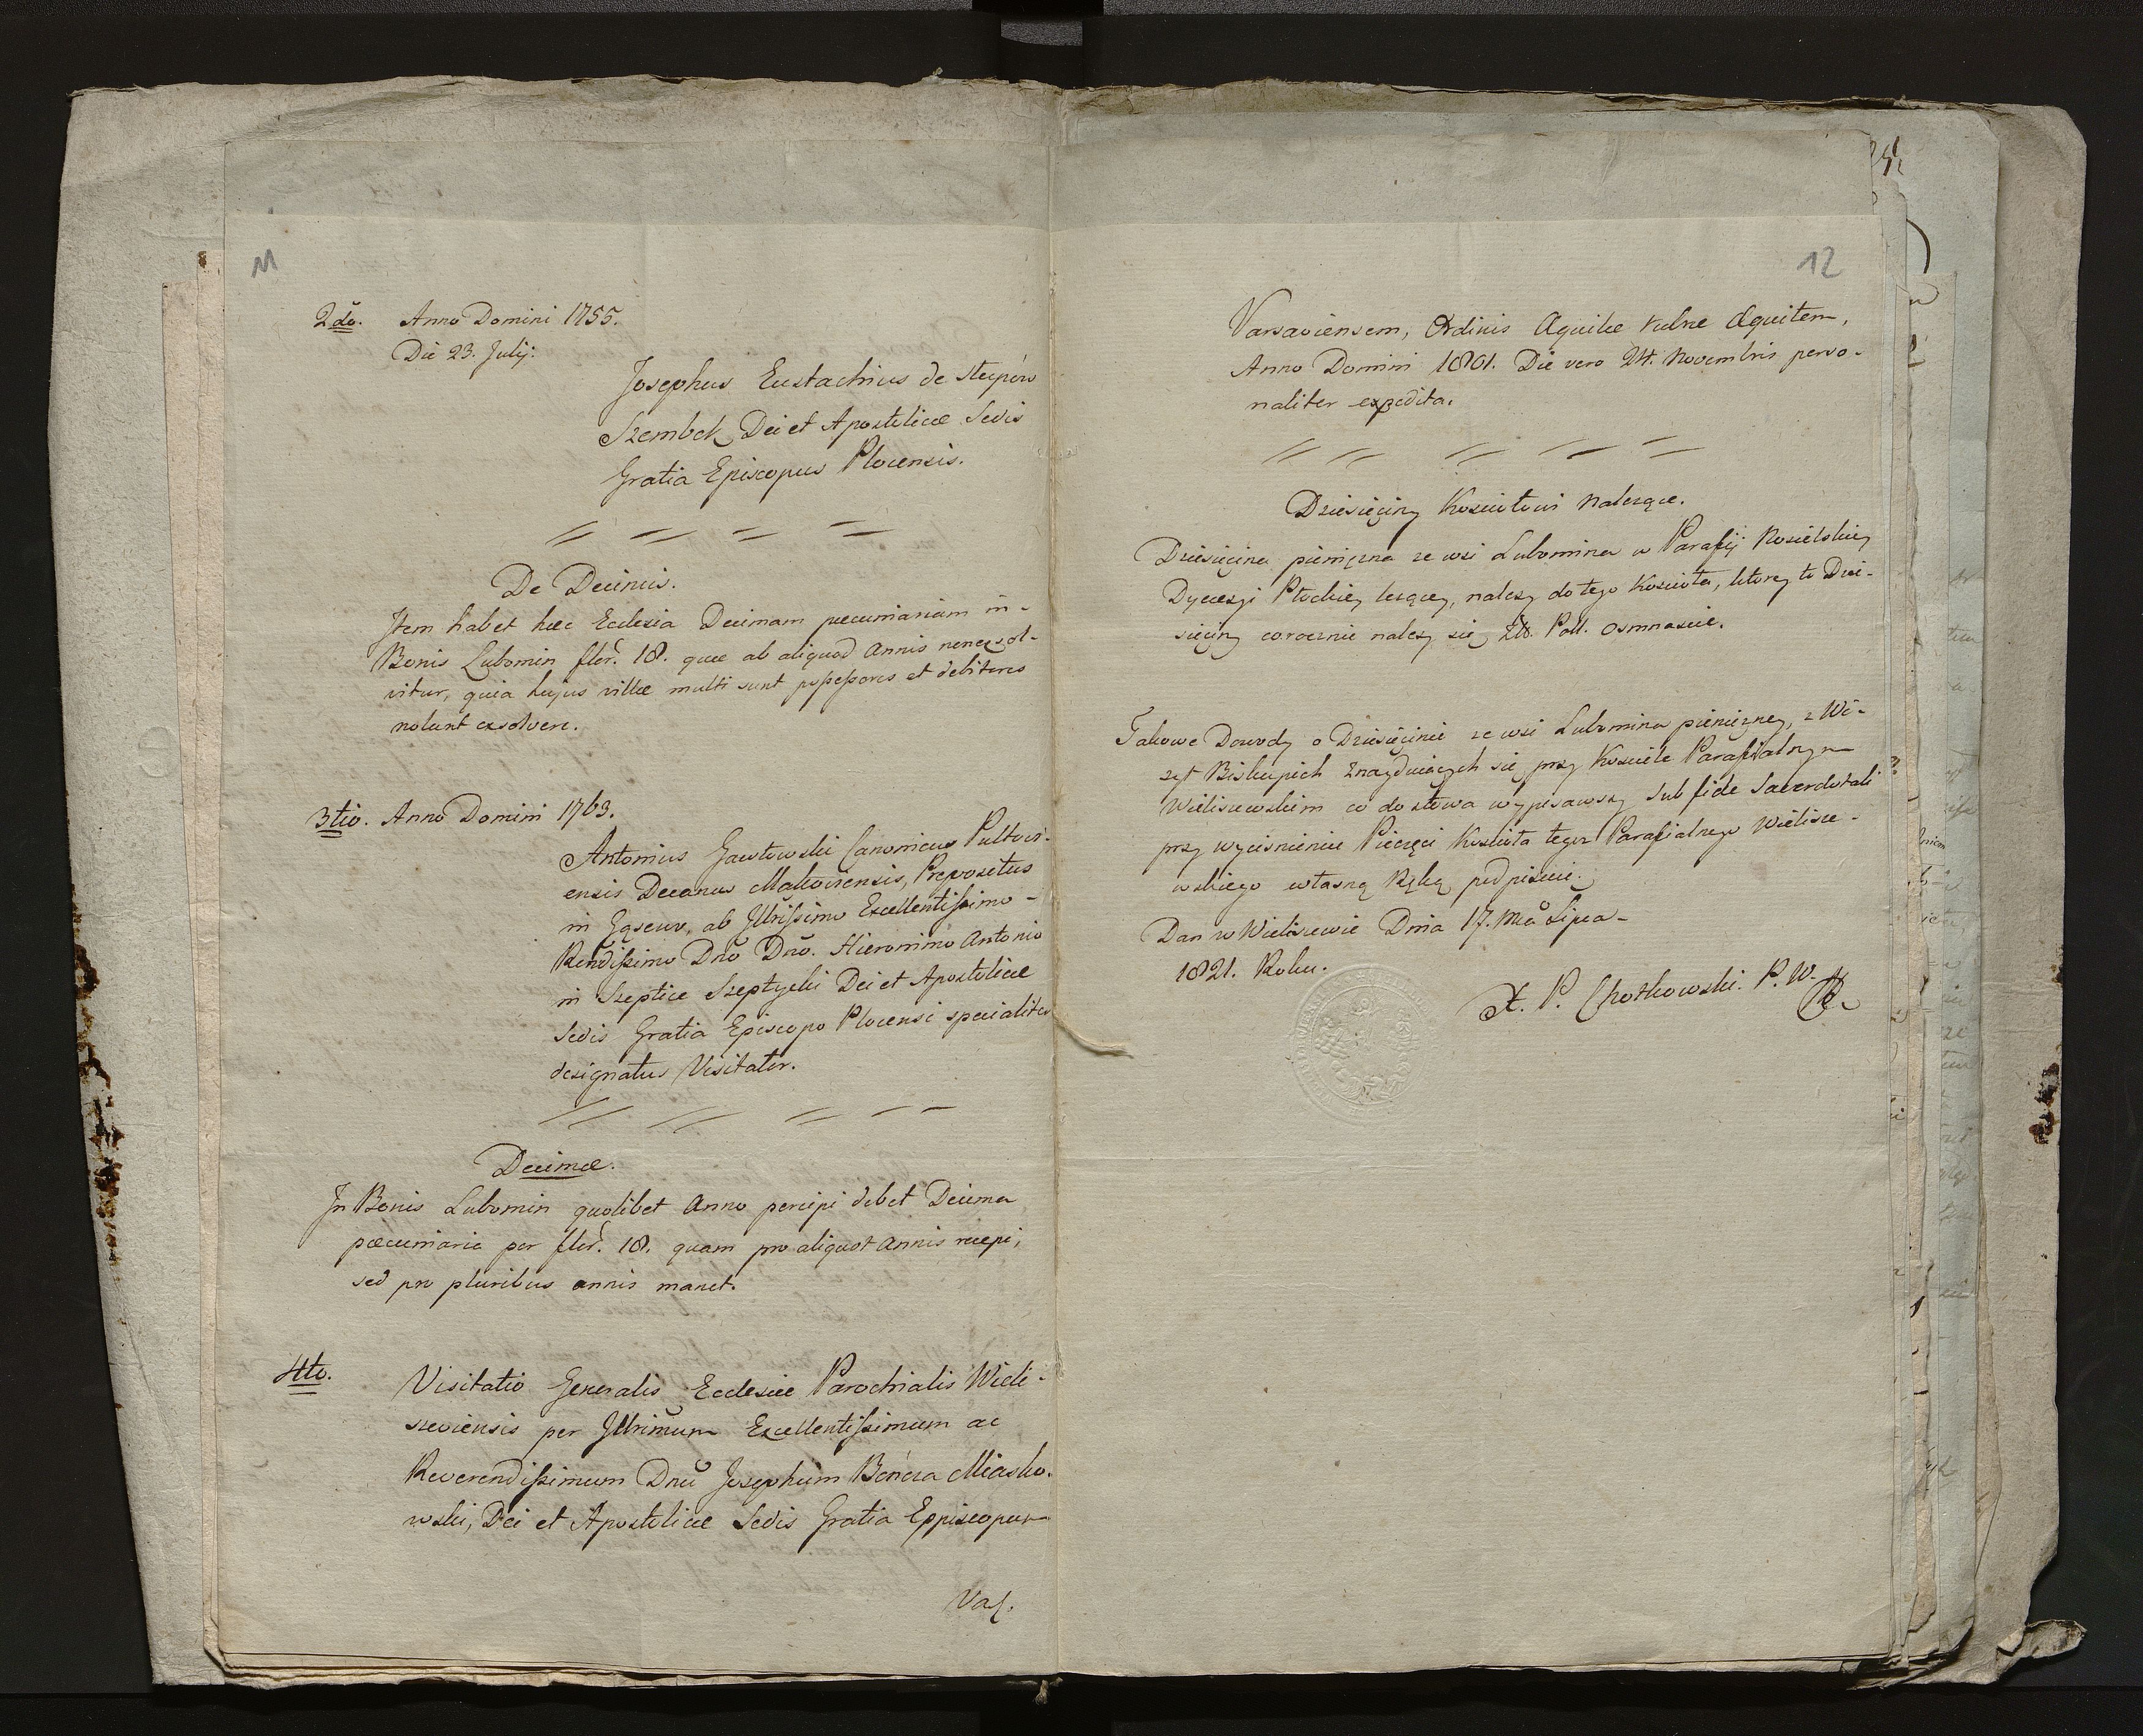 11
2do. Anno Domini 1755.
Die 23. Julij.
Josephus Eustachius de Słupów
Szembek Dei et Apostolicæ Sedis
Gratia Episcopus Plocensis.
De Decimis.
Item habet hæc Ecclesia Decimam pecuniariam in
Bonis Lubomin flor. 18. quæ ab aliquod annis non exsol-
vitur, quia hujus villæ multi sunt possessores et debitores
nolunt exsolvere.
3tio. Anno Domini 1763.
Antonius Gawłowski Canonicus Pultovi-
ensis Decanus Makoviensis, Prepositus
in Gąsewo, ab Illrissimo Excellentissimo
Rendissimo Dno Dno. Hieronimo Antonio
in Szeptice Szeptycki Dei et Apostolicæ
Sedis Gratia Episcopo Plocensi specialiter
designatus Visitator.
Decimæ.
In Bonis Lubomin quolibet Anno percipi debet Decima
pæcuniaria per flor. 18. quam pro aliquot annis recepi,
sed pro pluribus annis manet.
4to. Visitatio Generalis Ecclesiæ Parochialis Wieli-
szeviensis per Illrimum Excellentissimum ac
Reverendissimum Dnu Josephum Boncza Miasko-
wski, Dei et Apostolicæ Sedis Gratia Eppiscopum
Var.
12
Varsaviensem, Ordinis Aquilæ rubræ Æquitem,
Anno Domini 1801. Die vero 24. Novembris perso-
naliter expedita.
Dziesięciny Kościołowi należące.
Dziesięcina pieniężna ze wsi Lubomina w Parafij Nosielskiej
Dyecezyi Płockiej leżącej, należy do tego Kościoła, którey to Dzie-
sięciny corocznie należy się Złt. Poll. osmnaście.
Takowe Dowody o Dziesięcinie ze wsi Lubomina pieniężney, z Wi-
zyt Biskupich znayduiących się przy Kościele Parafialnym
Wieliszewskim co do słowa wypisawszy sub fide Sacerdotali
przy wyciśnieniu Pieczęci Kościoła tegoż Parafialnego Wielisze-
wskiego własną Ręką podpisuię.
Dan w Wieliszewie Dnia 17. Mca Lipca
1821. Roku.
X. P. Chotkowski. P. W.